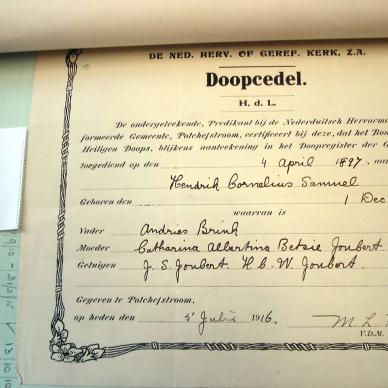 DE NED. HERV. OF GEREF. KERK, Z.A.
Doopcedel.
H. d. L.
De ondergeteekende, Predikant bij de Nederduitsch Hervorm
formeerde Gemeente, Potchefstroom, certificeert bij deze, dat het Bon
Heiligen Doops, blijkens aanteekening in het Doopregister der G
toegediend op den 4 April 1897, aa
Hendrik Cornelius Samuel
Geboren den 1 Dec
waarvan is
Vader Andries Brink
Moeder Catharina Albertina Betsie Joubert
Getuigen J. S. Joubert. H. C. W. Joubert.
Gegeven te Potchefstroom,
op heden den 5 Julie 1916. M. L.
V.D.M.